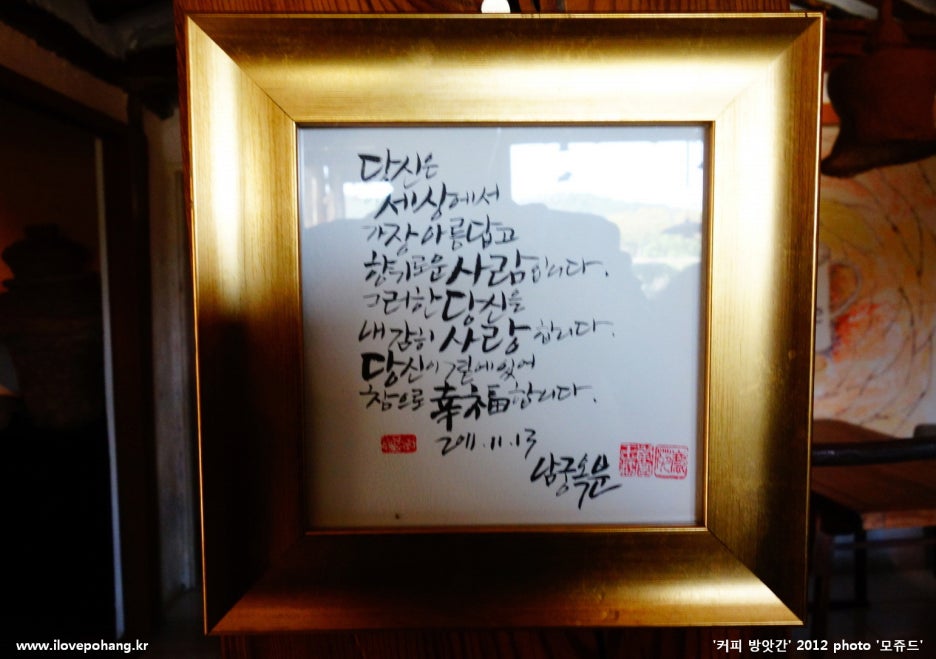 당신은
세상에서
가장 아름답고
향기로운 사람입니다.
그러한 당신을
내 감히 사랑합니다.
당신이 곁에 있어
참으로 幸福합니다.
2011.11.13
남궁옥분
www.ilovepohang.kr
'커피 방앗간' 2012 photo '모쥬드'